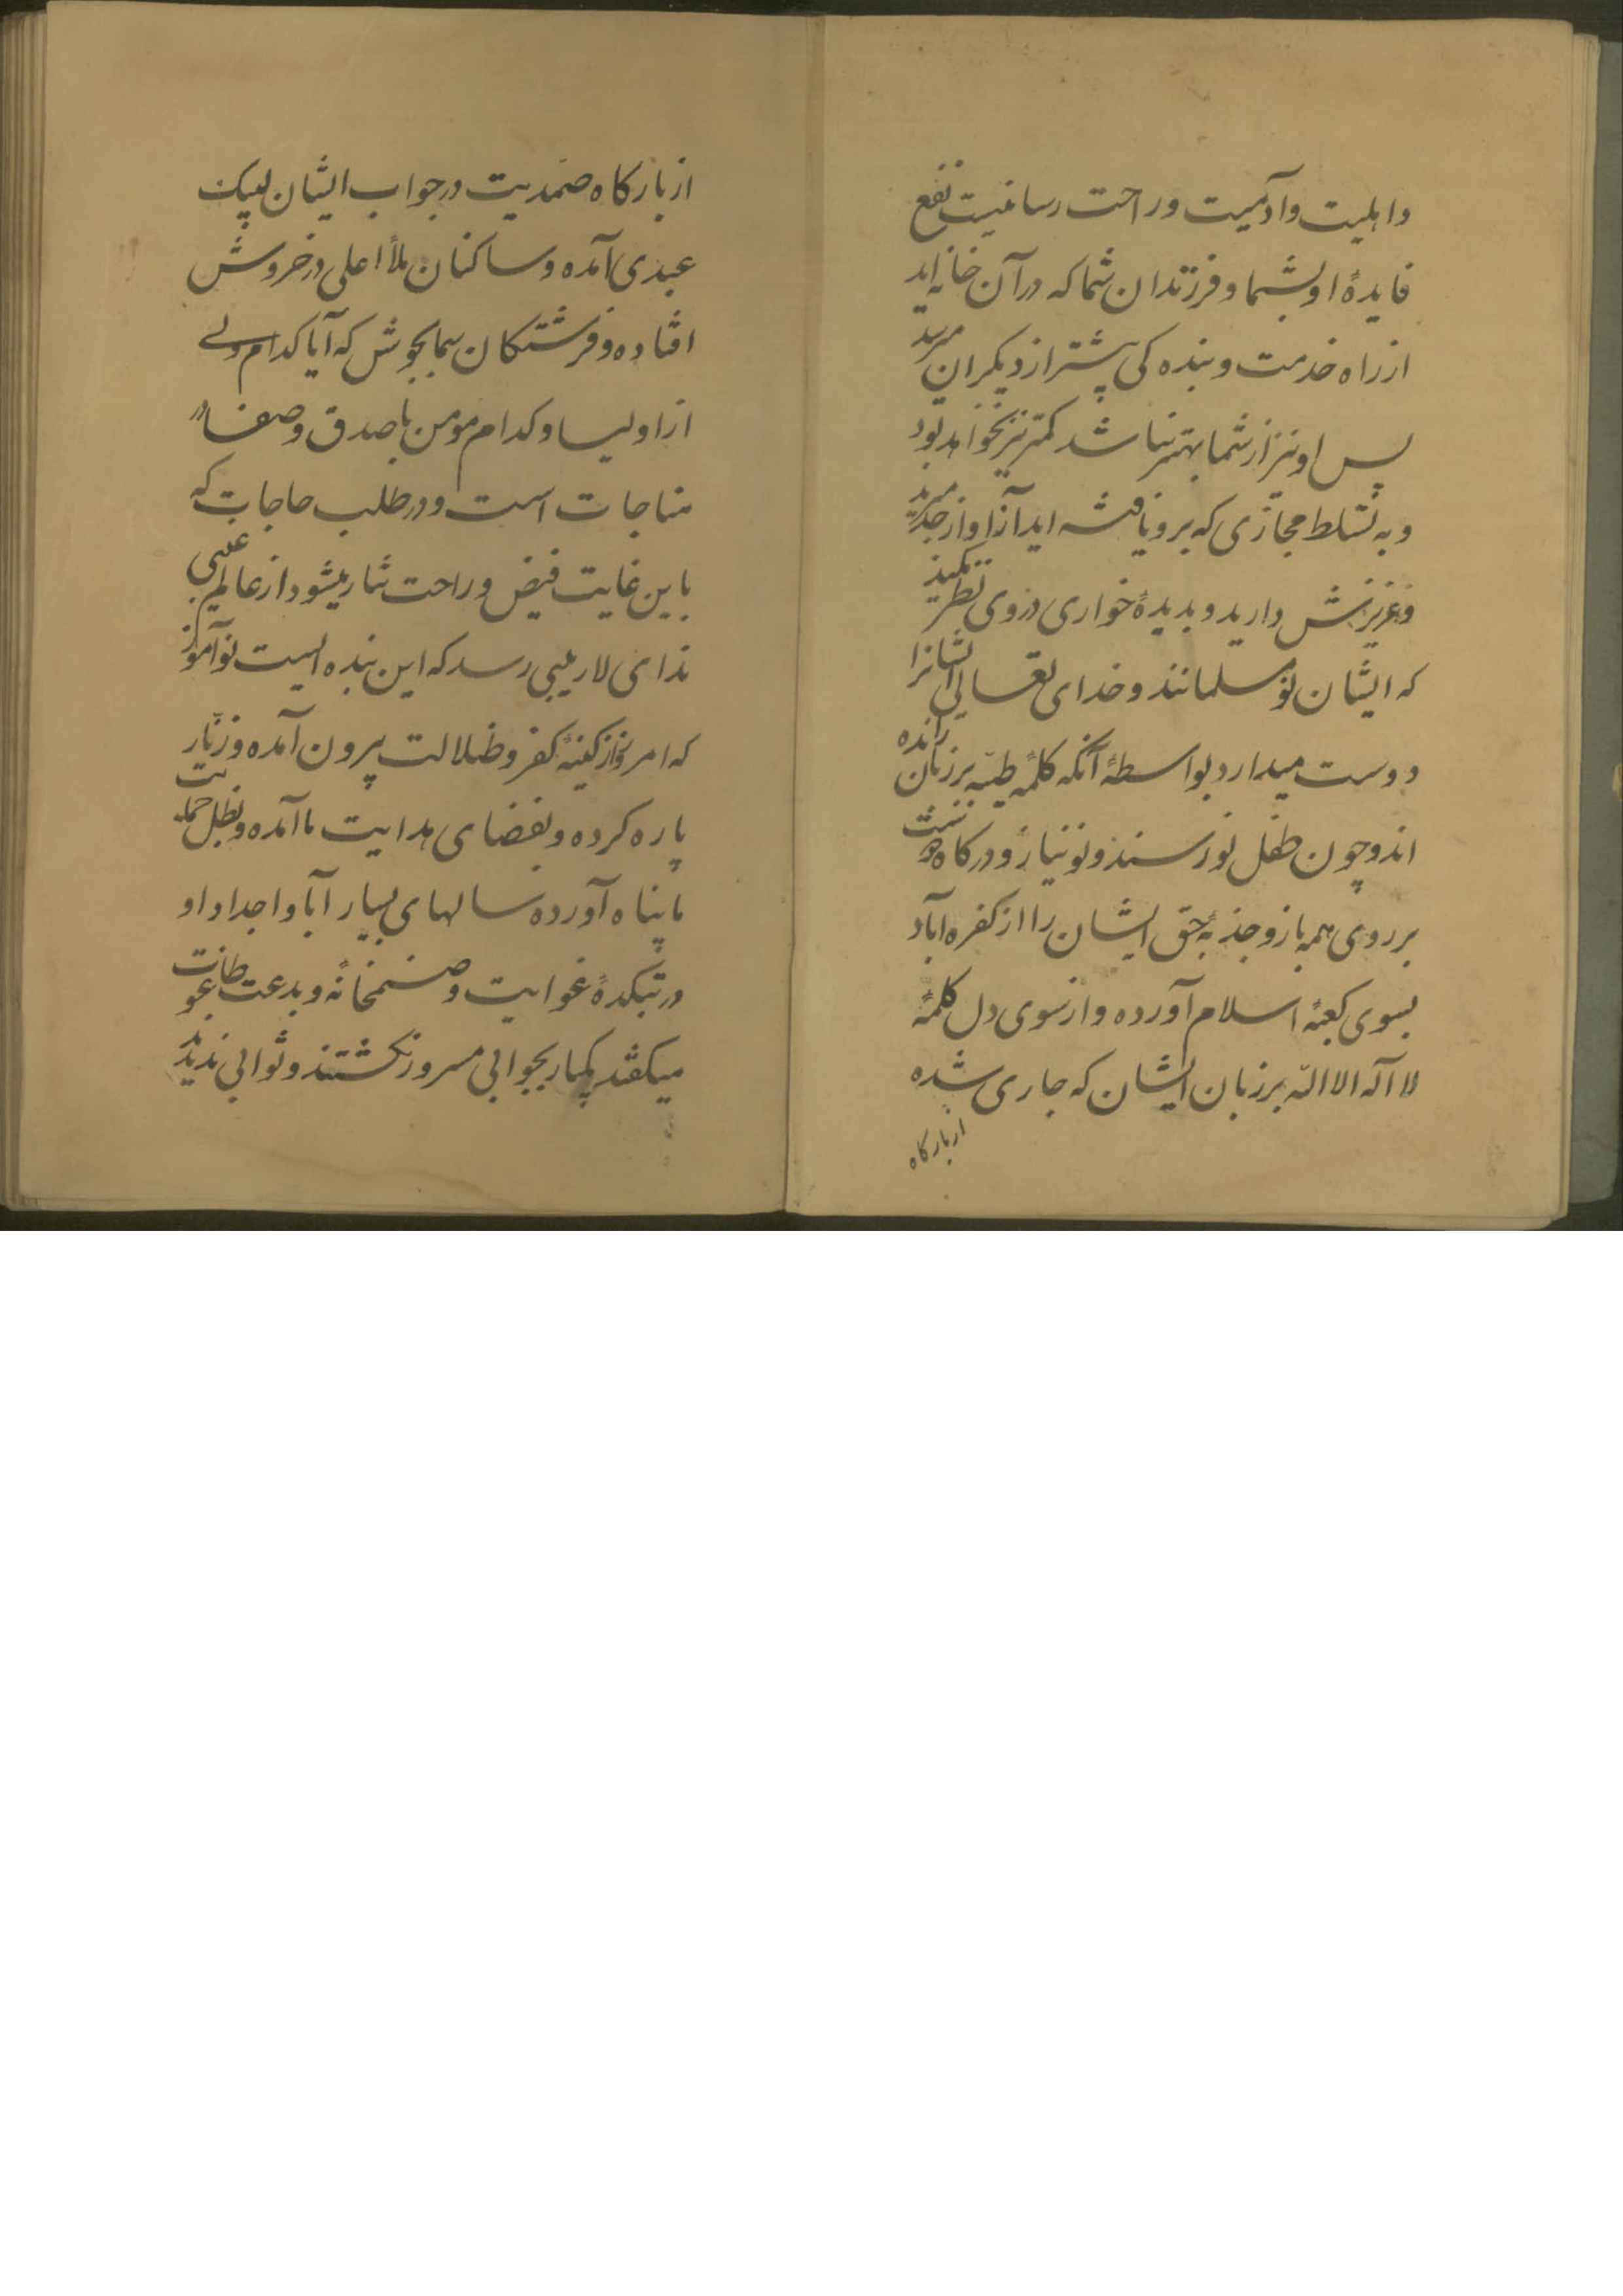 واهلیت وآدمیت وراحت رسانیست نفع
فایدهٔ او بشما و فرزندان شما که در آن خانه اید
از راه خدمت و بنده کی پیشتر از دیکران میرسد
پس او نیز از شما بهتر نباشد کمتر نیز نخواهد بود
و به تسلط مجازی که برو یافته اید آزاد از خود
وعزیزش دارید و بدیدهٔ خواری در وی نظر نکنید
که ایشان نو مسلمانند و خدای تعالی ایشانرا
دوست میدارد بواسطهٔ آنکه کلمهٔ طیبه بر زبان رانده
اند و چون طفل نورسند و نونیاز و درکاه
بر روی همه باز و جذبهٔ حق ایشان را از کفره اباد
بسوی کعبهٔ اسلام آورده و از سوی دل کلمهٔ
لا اله الا الله بر زبان ایشان که جاری شده
از بارکاه
از بارکاه صمدیت در جواب ایشان لبیک
عبدی آمده و ساکنان ملأ اعلی در خروش
افتاده و فرشتکان سما بجوش که آیا کدام ولی
از اولیا و کدام مومن با صدق و صفا در
مناجات است و در طلب حاجات که
باین غایت فیض و راحت نثار میشود از عالم غیبی
ندای لاریبی رسد که این بنده ایست نوآموز
که امروز از کینهٔ کفر و ضلالت بیرون آمده و زنّار
پاره کرده و بفضای هدایت ما آمده و بظل حمایت
ما پناه آورده سالهای بسیار آبا و اجداد او
در بتکدهٔ غوایت و صنمخانهٔ و بدعت طاغوت
میکفتند یکبار بجوابی مسرور نکشتند و ثوابی ندیدند